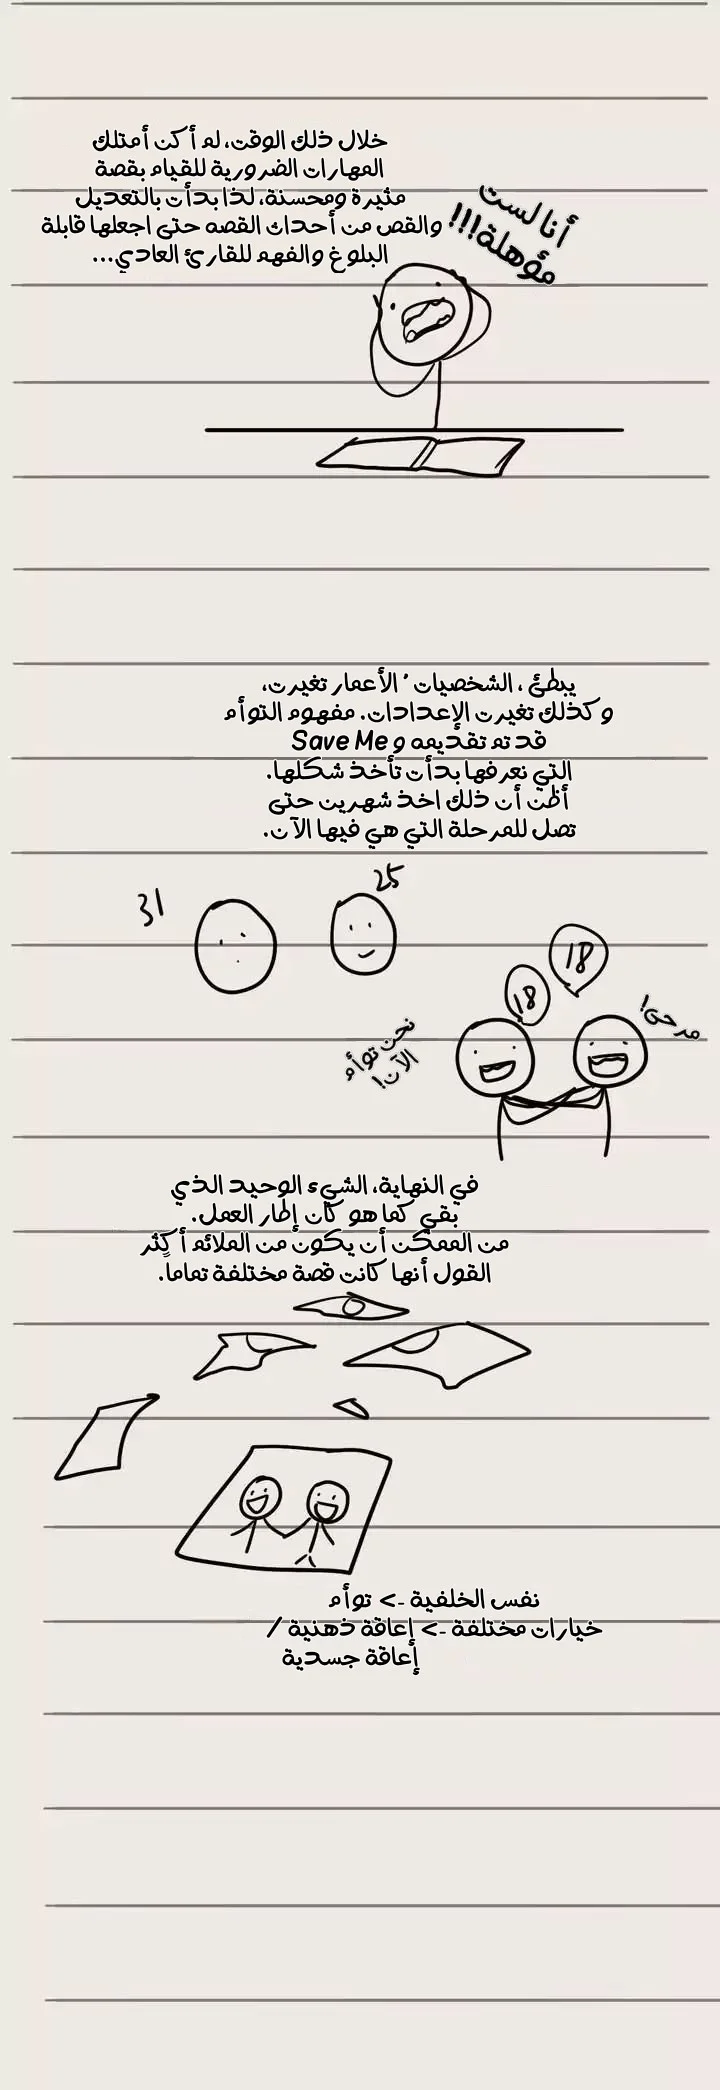 خلال ذلك الوقت، لم أكن أمتلك
المهارات الضرورية للقيام بقصة
مثيرة ومحسنة، لذا بدأت بالتعديل
والقص من أحداث القصه حتى اجعلها قابلة
البلوغ والفهم للقارئ العادي...
أنا لست
مؤهلة!!!
يبطئ ، الشخصيات ' الأعمار تغيرت،
وكذلك تغيرت الإعدادات. مفهوم التوأم
قد تم تقديمه و Save Me
التي نعرفها بدأت تأخذ شكلها.
أظن أن ذلك اخذ شهرين حتى
تصل للمرحلة التي هي فيها الآن.
31
25
18
18
مرحى!
نحن توأم
الآن!
في النهاية، الشيء الوحيد الذي
بقي كما هو كان إطار العمل.
من الممكن أن يكون من الملائم أكثر
القول أنها كانت قصة مختلفة تماما.
نفس الخلفية -> توأم
خيارات مختلفة -> إعاقة ذهنية /
إعاقة جسدية